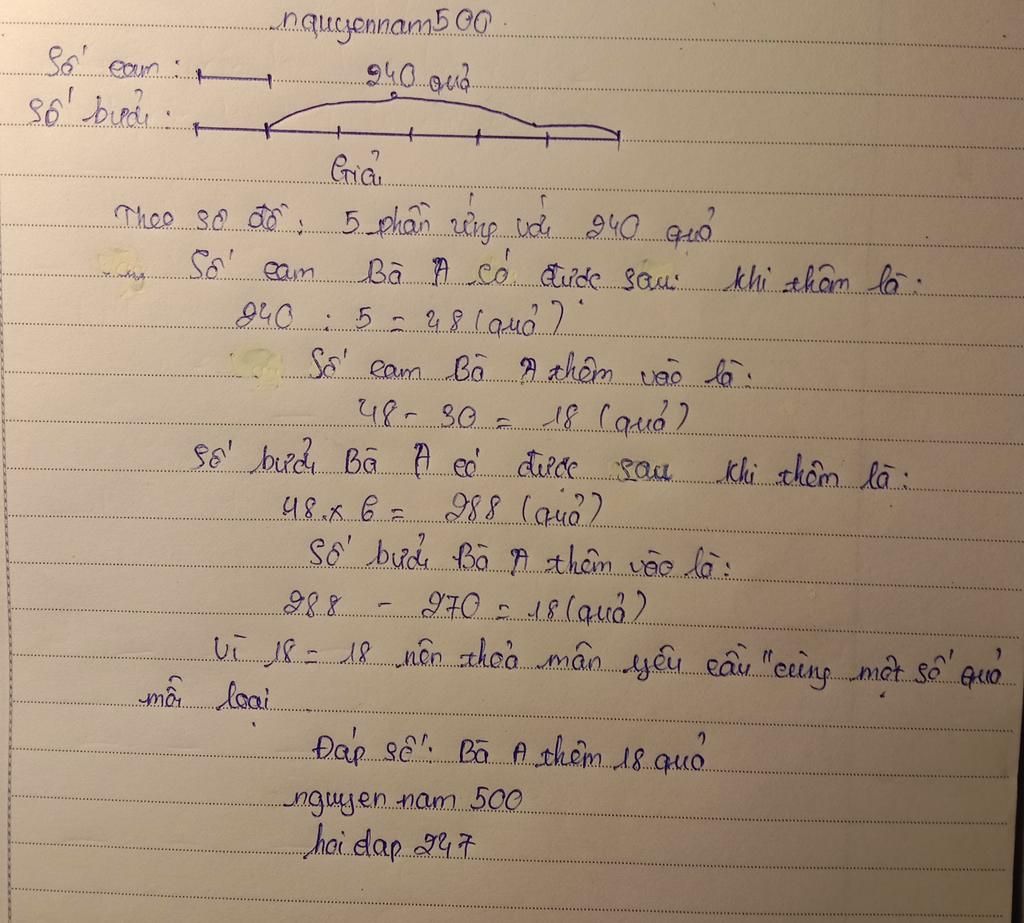 nguyennam500
Số cam:
240 quả
Số bưởi:
Giải
Theo sơ đồ: 5 phần ứng với 240 quả
Số cam Bà A có được sau khi thêm là:
240 : 5 = 48 (quả)
Số cam Bà A thêm vào là:
48 - 30 = 18 (quả)
Số bưởi Bà A có được sau khi thêm là:
48 x 6 = 288 (quả)
Số bưởi Bà A thêm vào là:
288 - 270 = 18 (quả)
Vì 18 = 18 nên thoả mãn yêu cầu "cùng một số quả
mỗi loại
Đáp số: Bà A thêm 18 quả
nguyen nam 500
hoi dap 247